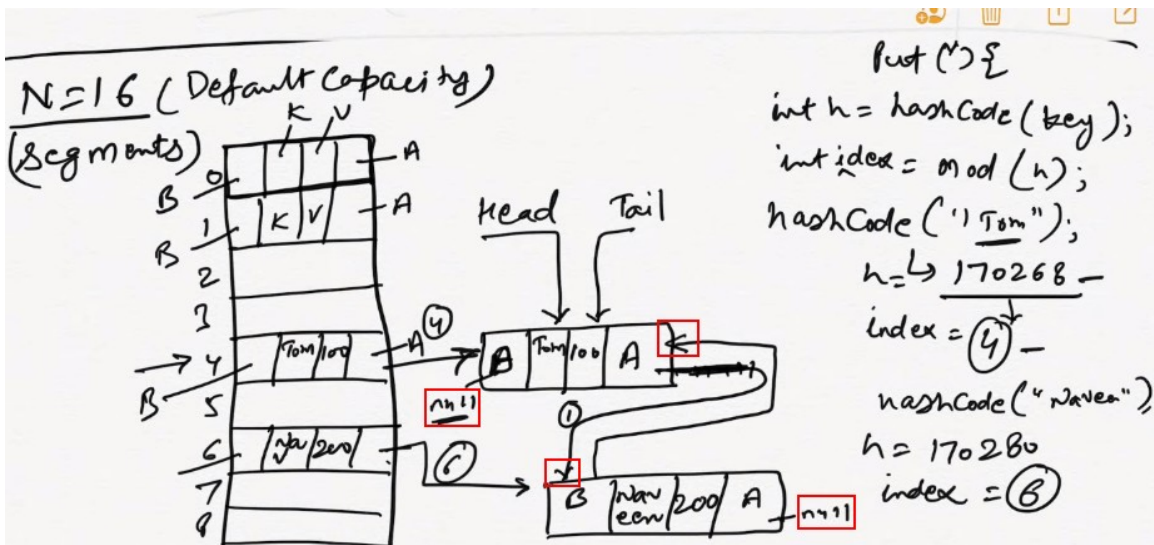 N=16 (Default Capacity)
(Segments)
K V
0 A
B
1 K V A
B
2
3
4 Tom 100 A 4
B
5
6 200 6
7
8
Head Tail
A Tom 100 A
null
1
B Naveen 200 A
null
Put( ) {
int h = hashCode (key);
int idex = mod (h);
hashCode ("Tom");
h = 170268
index = 4
hashCode ("Naveen")
h = 170280
index = 6